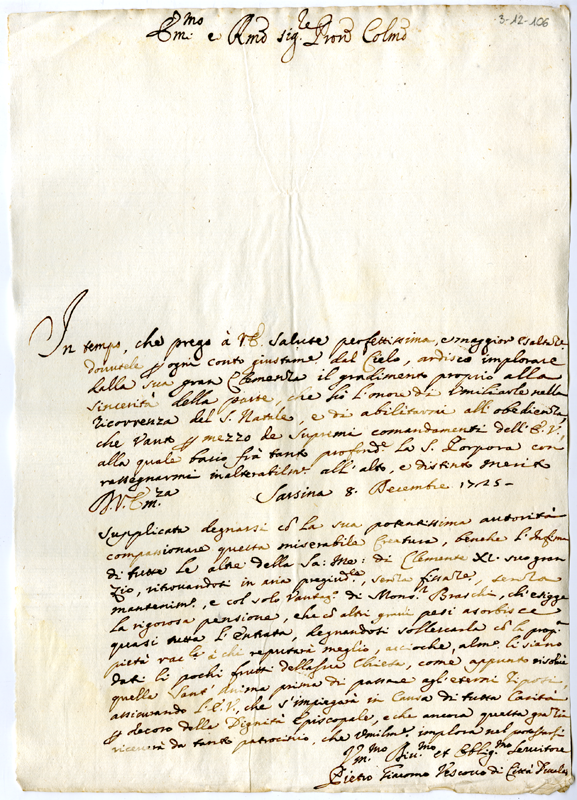 3-12-106
Em.mo e Rmo sig.re Pron Colmo
In tempo, che prego à V.E. salute perfettissima, e maggior esaltaz.e
dovutele p ogni conto giustame dal Cielo, ardisco implorare
dalla sua gran Clemenza il gradimento proprio alla
sincerità della parte, che hò l'onore di umiliarle nella
ricorrenza del S. Natale, e di abilitarmi all'obedienza
che vanto p mezzo de supremi comandamenti dell'E.V.
alla quale bacio frà tanto profond.e la S. Porpora con
rassegnarmi inalterabilm.e all'alto, e distinto merito
D.V.Em.za Sarsina 8. Decembre 1725-
Supplicata degnarsi cõ la sua potentissima autorità
compassionare questa miserabile Creatura, benche l'
di tutte le altre della Sa: Me: di Clemente XI. suo gran
Zio, ritrovandosi in aria pregiud.le, senza, senza
mantenim.o, e col solo di Mons.r Braschi, ch'esigge
la rigorosa pensione, che cõ altri pesi asorbisce
quasi tutta l'Entrata, degnandosi sollevarla cõ la prop.a
pietà à chi reputarà meglio, acciòche, alm.o li siano
dati li pochi frutti della Chieta, come appunto
quella Sant'Anima prima di passare agl'eterni riposi,
assicurando l'E.V., che s'impiegarà in Causa di tutta Carità
p decoro della Dignità Episcopale, e che ancora questa grazia
ricever da tanto patrocinio, che umilm.e implora nel
Um.mo Div.mo et Oblig.mo servitore
Pietro Giacomo Vescovo di Città